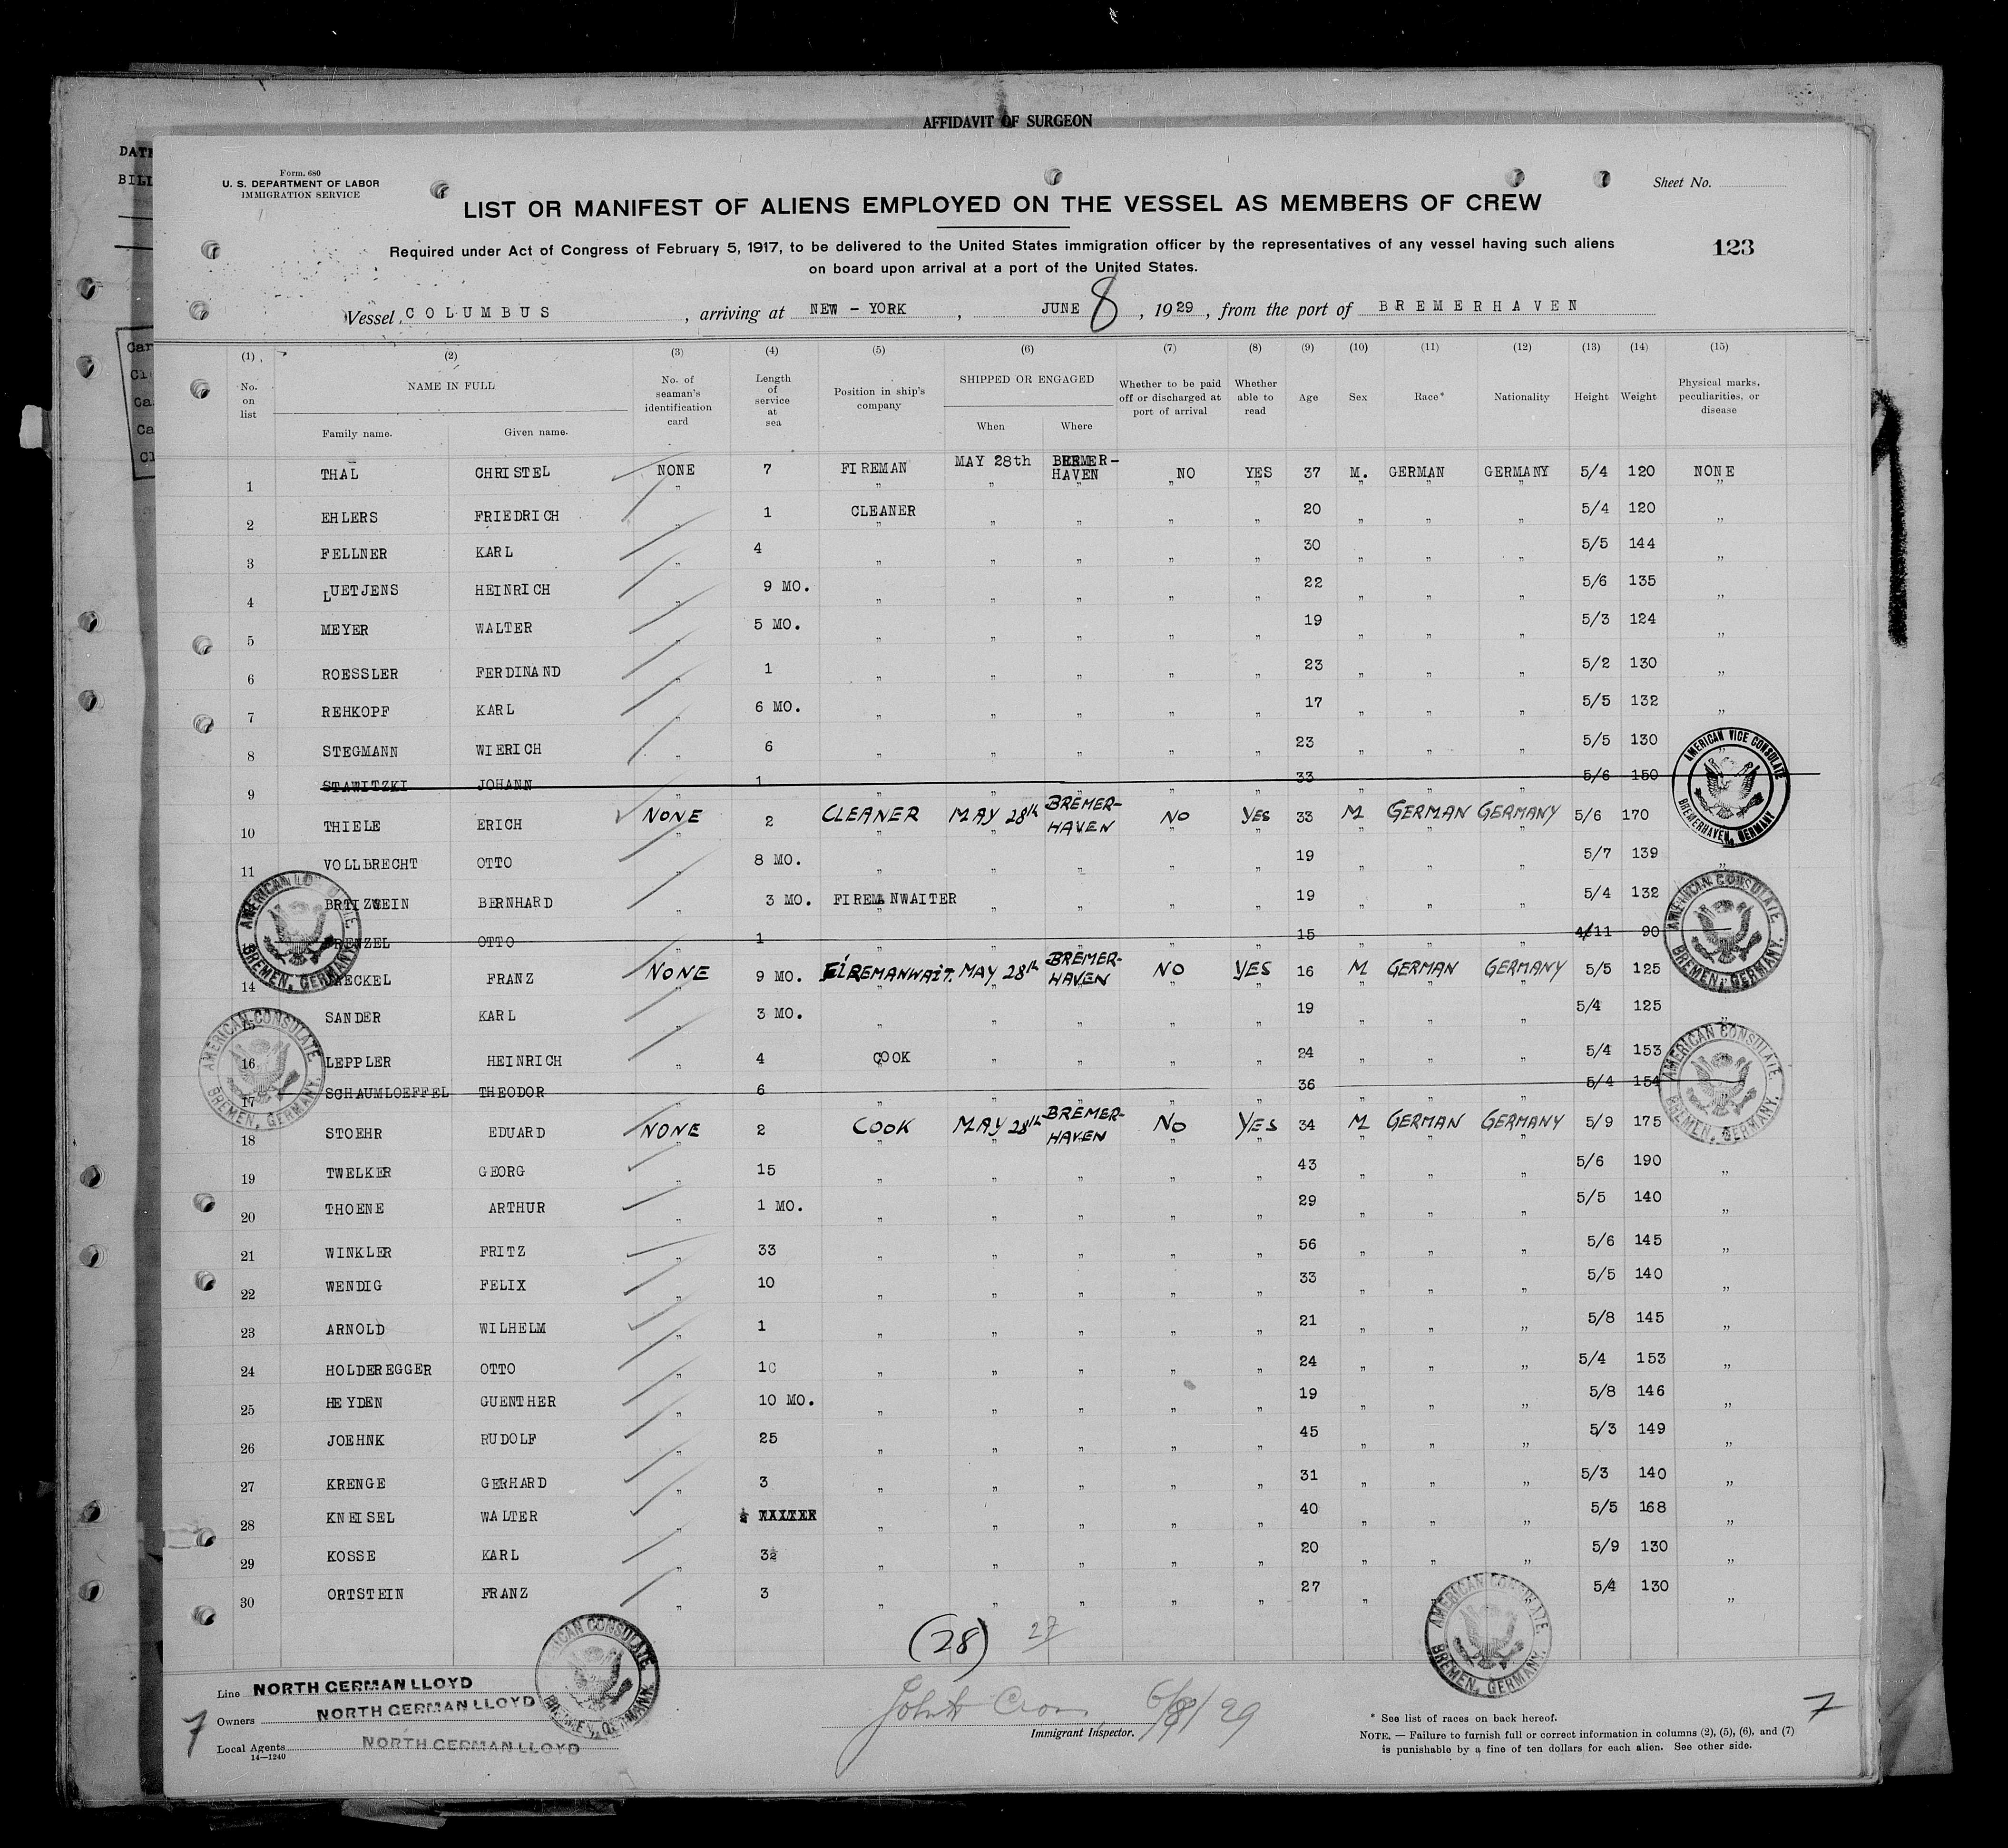 AFFIDAVIT OF SURGEON
DATE
BILL
Form. 680
U. S. DEPARTMENT OF LABOR
IMMIGRATION SERVICE
Sheet No.
LIST OR MANIFEST OF ALIENS EMPLOYED ON THE VESSEL AS MEMBERS OF CREW
Required under Act of Congress of February 5, 1917, to be delivered to the United States immigration officer by the representatives of any vessel having such aliens
on board upon arrival at a port of the United States.
123
Vessel COLUMBUS, arriving at NEW - YORK, JUNE 8, 1929, from the port of BREMERHAVEN
(1) (2) (3) (4) (5) (6) (7) (8) (9) (10) (11) (12) (13) (14) (15)
No. on list NAME IN FULL Family name. Given name. No. of seaman's identification card Length of service at sea Position in ship's company SHIPPED OR ENGAGED When Where Whether to be paid off or discharged at port of arrival Whether able to read Age Sex Race* Nationality Height Weight Physical marks, peculiarities, or disease
1 THAL CHRISTEL NONE 7 FIREMAN MAY 28th BREMER-HAVEN NO YES 37 M. GERMAN GERMANY 5/4 120 NONE
2 EHLERS FRIEDRICH " 1 CLEANER " " " " 20 " " " 5/4 120 "
3 FELLNER KARL " 4 " " " " " 30 " " " 5/5 144 "
4 LUETJENS HEINRICH " 9 MO. " " " " " 22 " " " 5/6 135 "
5 MEYER WALTER " 5 MO. " " " " " 19 " " " 5/3 124 "
6 ROESSLER FERDINAND " 1 " " " " " 23 " " " 5/2 130 "
7 REHKOPF KARL " 6 MO. " " " " " 17 " " " 5/5 132 "
8 STEGMANN WIERICH " 6 " " " " " 23 " " " 5/5 130
9 STAWITZKI JOHANN " 1 " " " " " 33 " " " 5/6 150
10 THIELE ERICH NONE 2 CLEANER MAY 28th BREMER-HAVEN NO YES 33 M GERMAN GERMANY 5/6 170
11 VOLLBRECHT OTTO " 8 MO. " " " " " 19 " " " 5/7 139 "
BERNHARD " 3 MO. FIREMANWAITER " " " " 19 " " " 5/4 132
OTTO " 1 " " " " " 15 " " " 4/11 90
14 FRANZ NONE 9 MO. FIREMANWAIT. MAY 28th BREMER-HAVEN NO YES 16 M GERMAN GERMANY 5/5 125
15 SANDER KARL " 3 MO. " " " " " 19 " " " 5/4 125 "
16 LEPPLER HEINRICH " 4 COOK " " " " 24 " " " 5/4 153
17 SCHAUMLOEFFEL THEODOR " 6 " " " " " 36 " " " 5/4 154
18 STOEHR EDUARD NONE 2 COOK MAY 28th BREMER-HAVEN NO YES 34 M GERMAN GERMANY 5/9 175
19 TWELKER GEORG " 15 " " " " " 43 " " " 5/6 190 "
20 THOENE ARTHUR " 1 MO. " " " " " 29 " " " 5/5 140 "
21 WINKLER FRITZ " 33 " " " " " 56 " " " 5/6 145 "
22 WENDIG FELIX " 10 " " " " " 33 " " " 5/5 140 "
23 ARNOLD WILHELM " 1 " " " " " 21 " " " 5/8 145 "
24 HOLDEREGGER OTTO " 10 " " " " " 24 " " " 5/4 153 "
25 HEYDEN GUENTHER " 10 MO. " " " " " 19 " " " 5/8 146 "
26 JOEHNK RUDOLF " 25 " " " " " 45 " " " 5/3 149 "
27 KRENGE GERHARD " 3 " " " " " 31 " " " 5/3 140 "
28 KNEISEL WALTER " " " " " " 40 " " " 5/5 168 "
29 KOSSE KARL " 3½ " " " " " 20 " " " 5/9 130 "
30 ORTSTEIN FRANZ " 3 " " " " " 27 " " 5/4 130 "
AMERICAN VICE CONSULATE BREMERHAVEN, GERMANY
AMERICAN CONSULATE BREMEN, GERMANY.
AMERICAN CONSULATE. BREMEN, GERMANY.
AMERICAN CONSULATE. BREMEN, GERMANY.
AMERICAN CONSULATE. BREMEN, GERMANY.
(28) 27
AMERICAN CONSULATE. BREMEN, GERMANY.
AMERICAN CONSULATE. BREMEN, GERMANY.
Line NORTH GERMAN LLOYD
Owners NORTH GERMAN LLOYD
Local Agents NORTH GERMAN LLOYD
14—1240
7
6/8/29
Immigrant Inspector.
* See list of races on back hereof.
NOTE. — Failure to furnish full or correct information in columns (2), (5), (6), and (7)
is punishable by a fine of ten dollars for each alien. See other side.
7